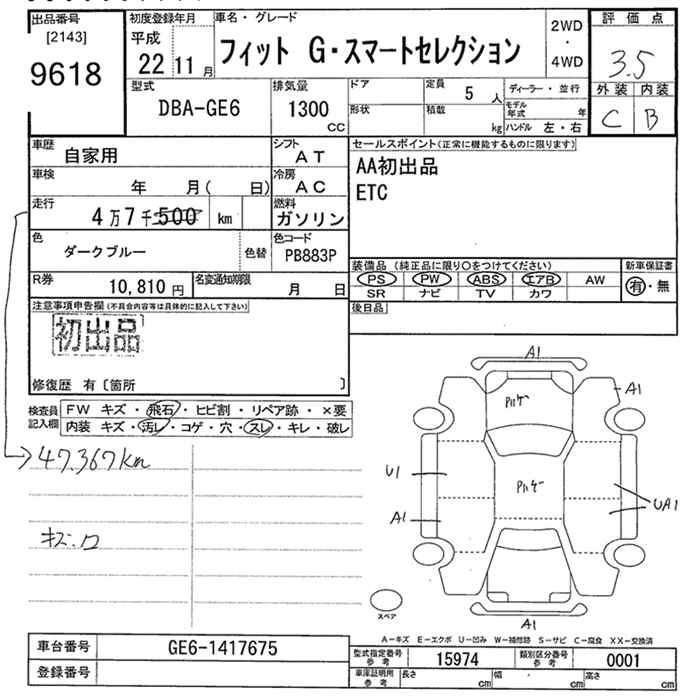 出品番号
[2143]
9618
初度登録年月
平成
22年11月
車名・グレード
フィット G・スマートセレクション
2WD
・
4WD
評価点
3.5
外装 内装
C B
型式
DBA-GE6
排気量
1300
CC
ドア
形状
定員
5人
積載
kg
ディーラー・並行
モデル年式 年
ハンドル 左・右
車歴
自家用
シフト
AT
車検
年 月( 日)
冷房
AC
走行
4万7千500 km
燃料
ガソリン
色
ダークブルー
色替
色コード
PB883P
R券
10,810円
名変通知期限
月 日
セールスポイント(正常に機能するものに限ります)
AA初出品
ETC
装備品 (純正品に限り○をつけてください)
PS PW ABS エアB AW
SR ナビ TV カワ
新車保証書
有・無
後日品
注意事項申告欄(不具合内容等は具体的に記入して下さい)
初出品
修復歴 有〔箇所 〕
検査員記入欄
FW キズ・飛石・ヒビ割・リペア跡・×要
内装 キズ・汚レ・コゲ・穴・スレ・キレ・破レ
47.367km
キズ.ワ
A1
A1
ハゲ
U1
ハゲ
UA1
A1
スペア
A1
A-キズ E-エクボ U-凹み W-補修跡 S-サビ C-腐食 XX-交換済
車台番号
GE6-1417675
登録番号
型式指定番号
参考
15974
類別区分番号
参考
0001
車庫証明用
参考
長さ cm
幅 cm
高さ cm